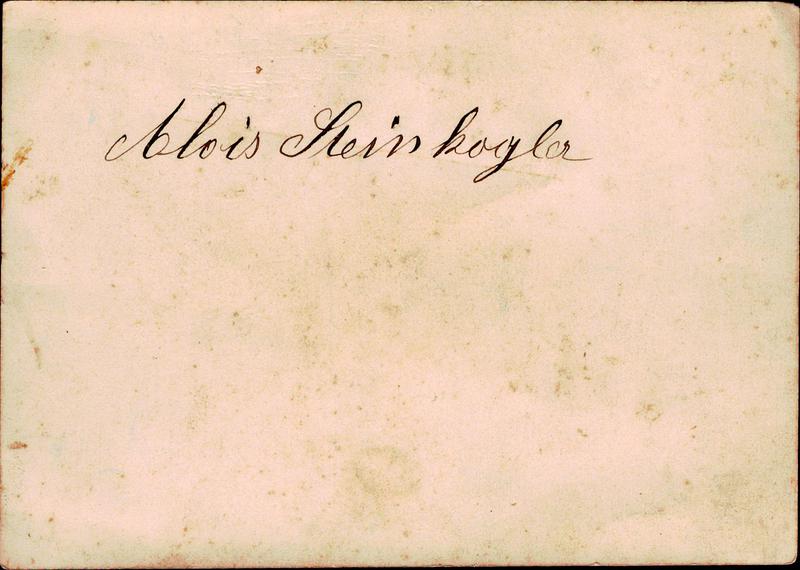 Alois Steinkogler